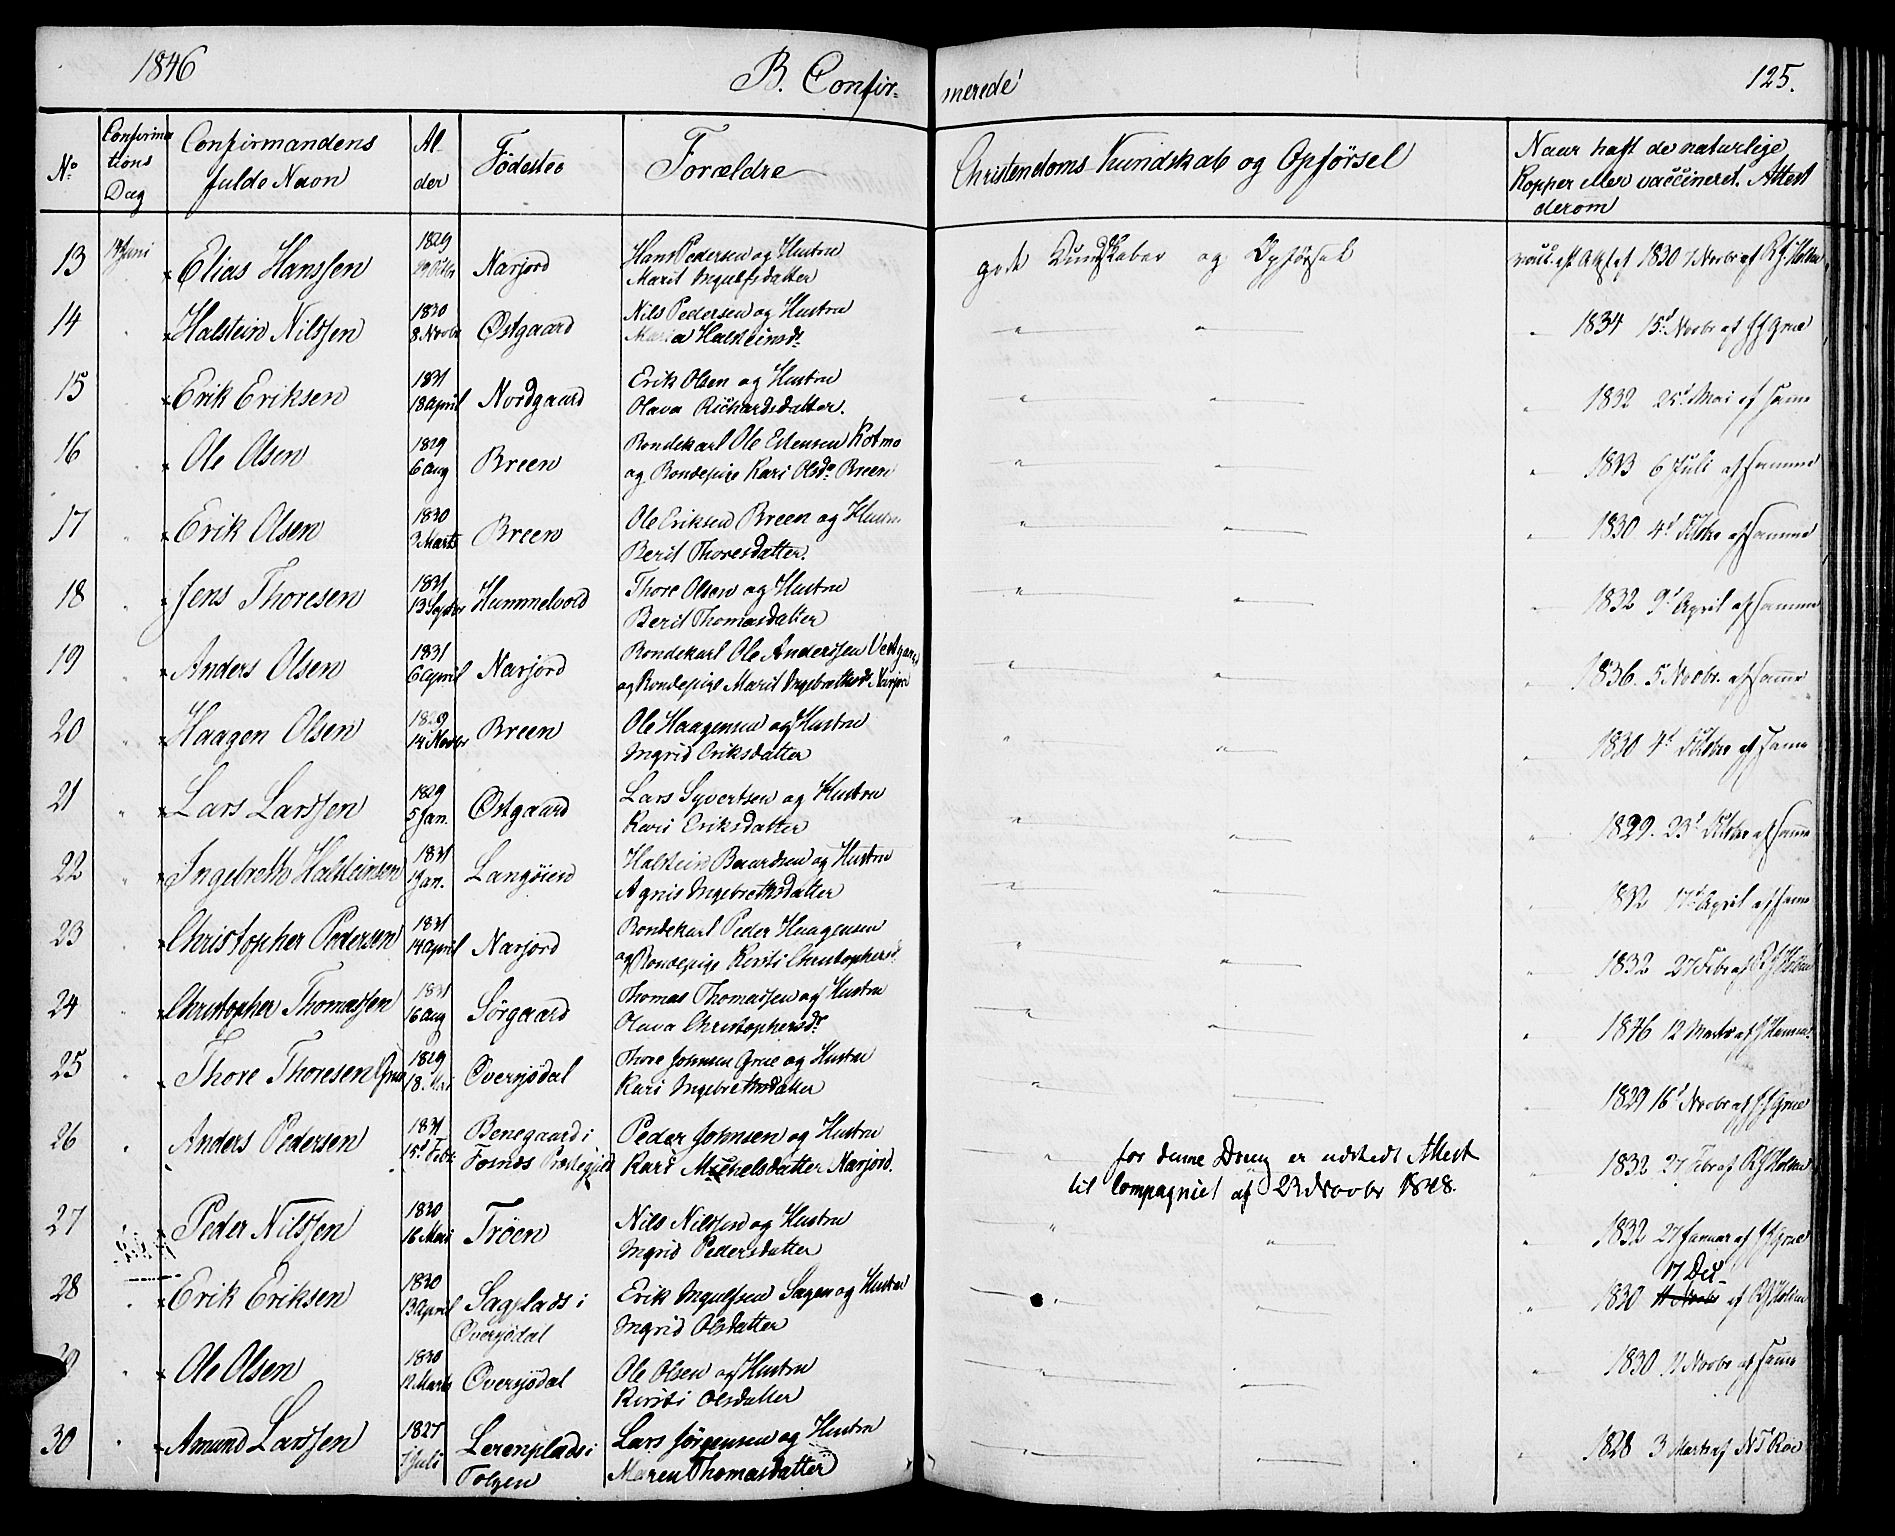 1846 B. Confir-
merede 125.
No
Confirma
tions
Dag
Confirmandens
fulde Navn
Al-
der
Födested
Forældre
Christendoms Kundskab og Opförsel
Naar haft de naturlige
Kopper eller vaccineret. Attest
derom
13 14 Juni Elias Hanssen 1829 Narjord Hans Pedersen og Hustru
Marit Ingulfsdatter
gode Kundskaber og Opförsel
1830 af Holm
14 Halstein Nilssen 1830 8 Novbr Östgaard Nils Pedersen og Hustru
Maria Halsteinsdr
1834 15d Novbr af Grue
15 Erik Eriksen 1831 18 April Nordgaard Erik Olsen og Hustru
Olava Richardsdatter.
1832 25d Mai af samme
16 Ole Olsen 1829 6 Aug Breen Bondekarl Ole Estensen Kotmo
og Bondepige Kari Olsdr Breen
6 Juli af samme
17 Erik Olsen 1830 3 Marts Breen Ole Eriksen Breen og Hustru
Berit Thoresdatter.
1830 4d Oktbr af samme
18 Jens Thoresen 1831 13 Septbr Hummelvold Thore Olsen og Hustru
Berit Thomasdatter
1832 9d April af samme
19 Anders Olsen 1831 6 April Narjord Bondekarl Ole Anderssen Vestgaard
og Bondepige Marit Ingebrethsdr Narjord
1836. 5 Novbr. af samme
20 Haagen Olsen 1829 14 Novbr Breen Ole Haagensen og Hustru
Ingrid Eriksdatter
1830 4d Oktbr af samme
21 Lars Larssen 1829 5 Jan. Östgaard Lars Syvertsen og Hustru
Kari Eriksdatter
1829. 23d Oktbr af samme
22 Ingebreth Halsteinsen 1831 Jan. Langöien Halstein Baardsen og Hustru
Agnis Ingebrethsdatter
1832 17d April af samme
23 Christopher Pedersen 1831 14 April Narjord Bondekarl Peder Haagensen
og Bondepige Kirsti Christophersd
1832 27 Febr af Holm
24 Christopher Thomassen 1831 16 Aug Sörgaard Thomas Thomassen og Hustru
Olava Christophersdr
1846 12 Marts af
25 Thore Thoresen Grue 1829 18 Översjödal Thore Johnsen Grue og Hustru
Kari Ingebrethsdatter
1829 16d Novbr af Grue
26 Anders Pedersen 1831 15d Febr Benegaard i
Fosnæs Præstegjeld Peder Johnsen og Hustru
Kari Michelsdatter Narjord.
for denne Dreng er udstedt Attest
til Compagniet af 23 Novbr 1848.
1832 27 Febr af Holm
27 Peder Nilssen 1830 16 Mai Tröen Nils Nilssen og Hustru
Ingrid Pedersdatter
1832 27 Januar af Grue
28 Erik Eriksen 1830 13 April Sagplads i
Översjödal Erik Ingulfsen Sagen og Hustru
Ingrid Olsdatter
17 Dec
1830 11 Novbr af Holm
29 Ole Olsen 1830 12 Marts Översjödal Ole Olsen og Hustru
Kirsti Olsdatter
1830 Novbr af samme
30 Amund Larssen 1827 Juli Lerenplads i
Tolgen Lars Jörgensen og Hustru
Maren Thomasdatter
1828 3 Marts af N T Röe